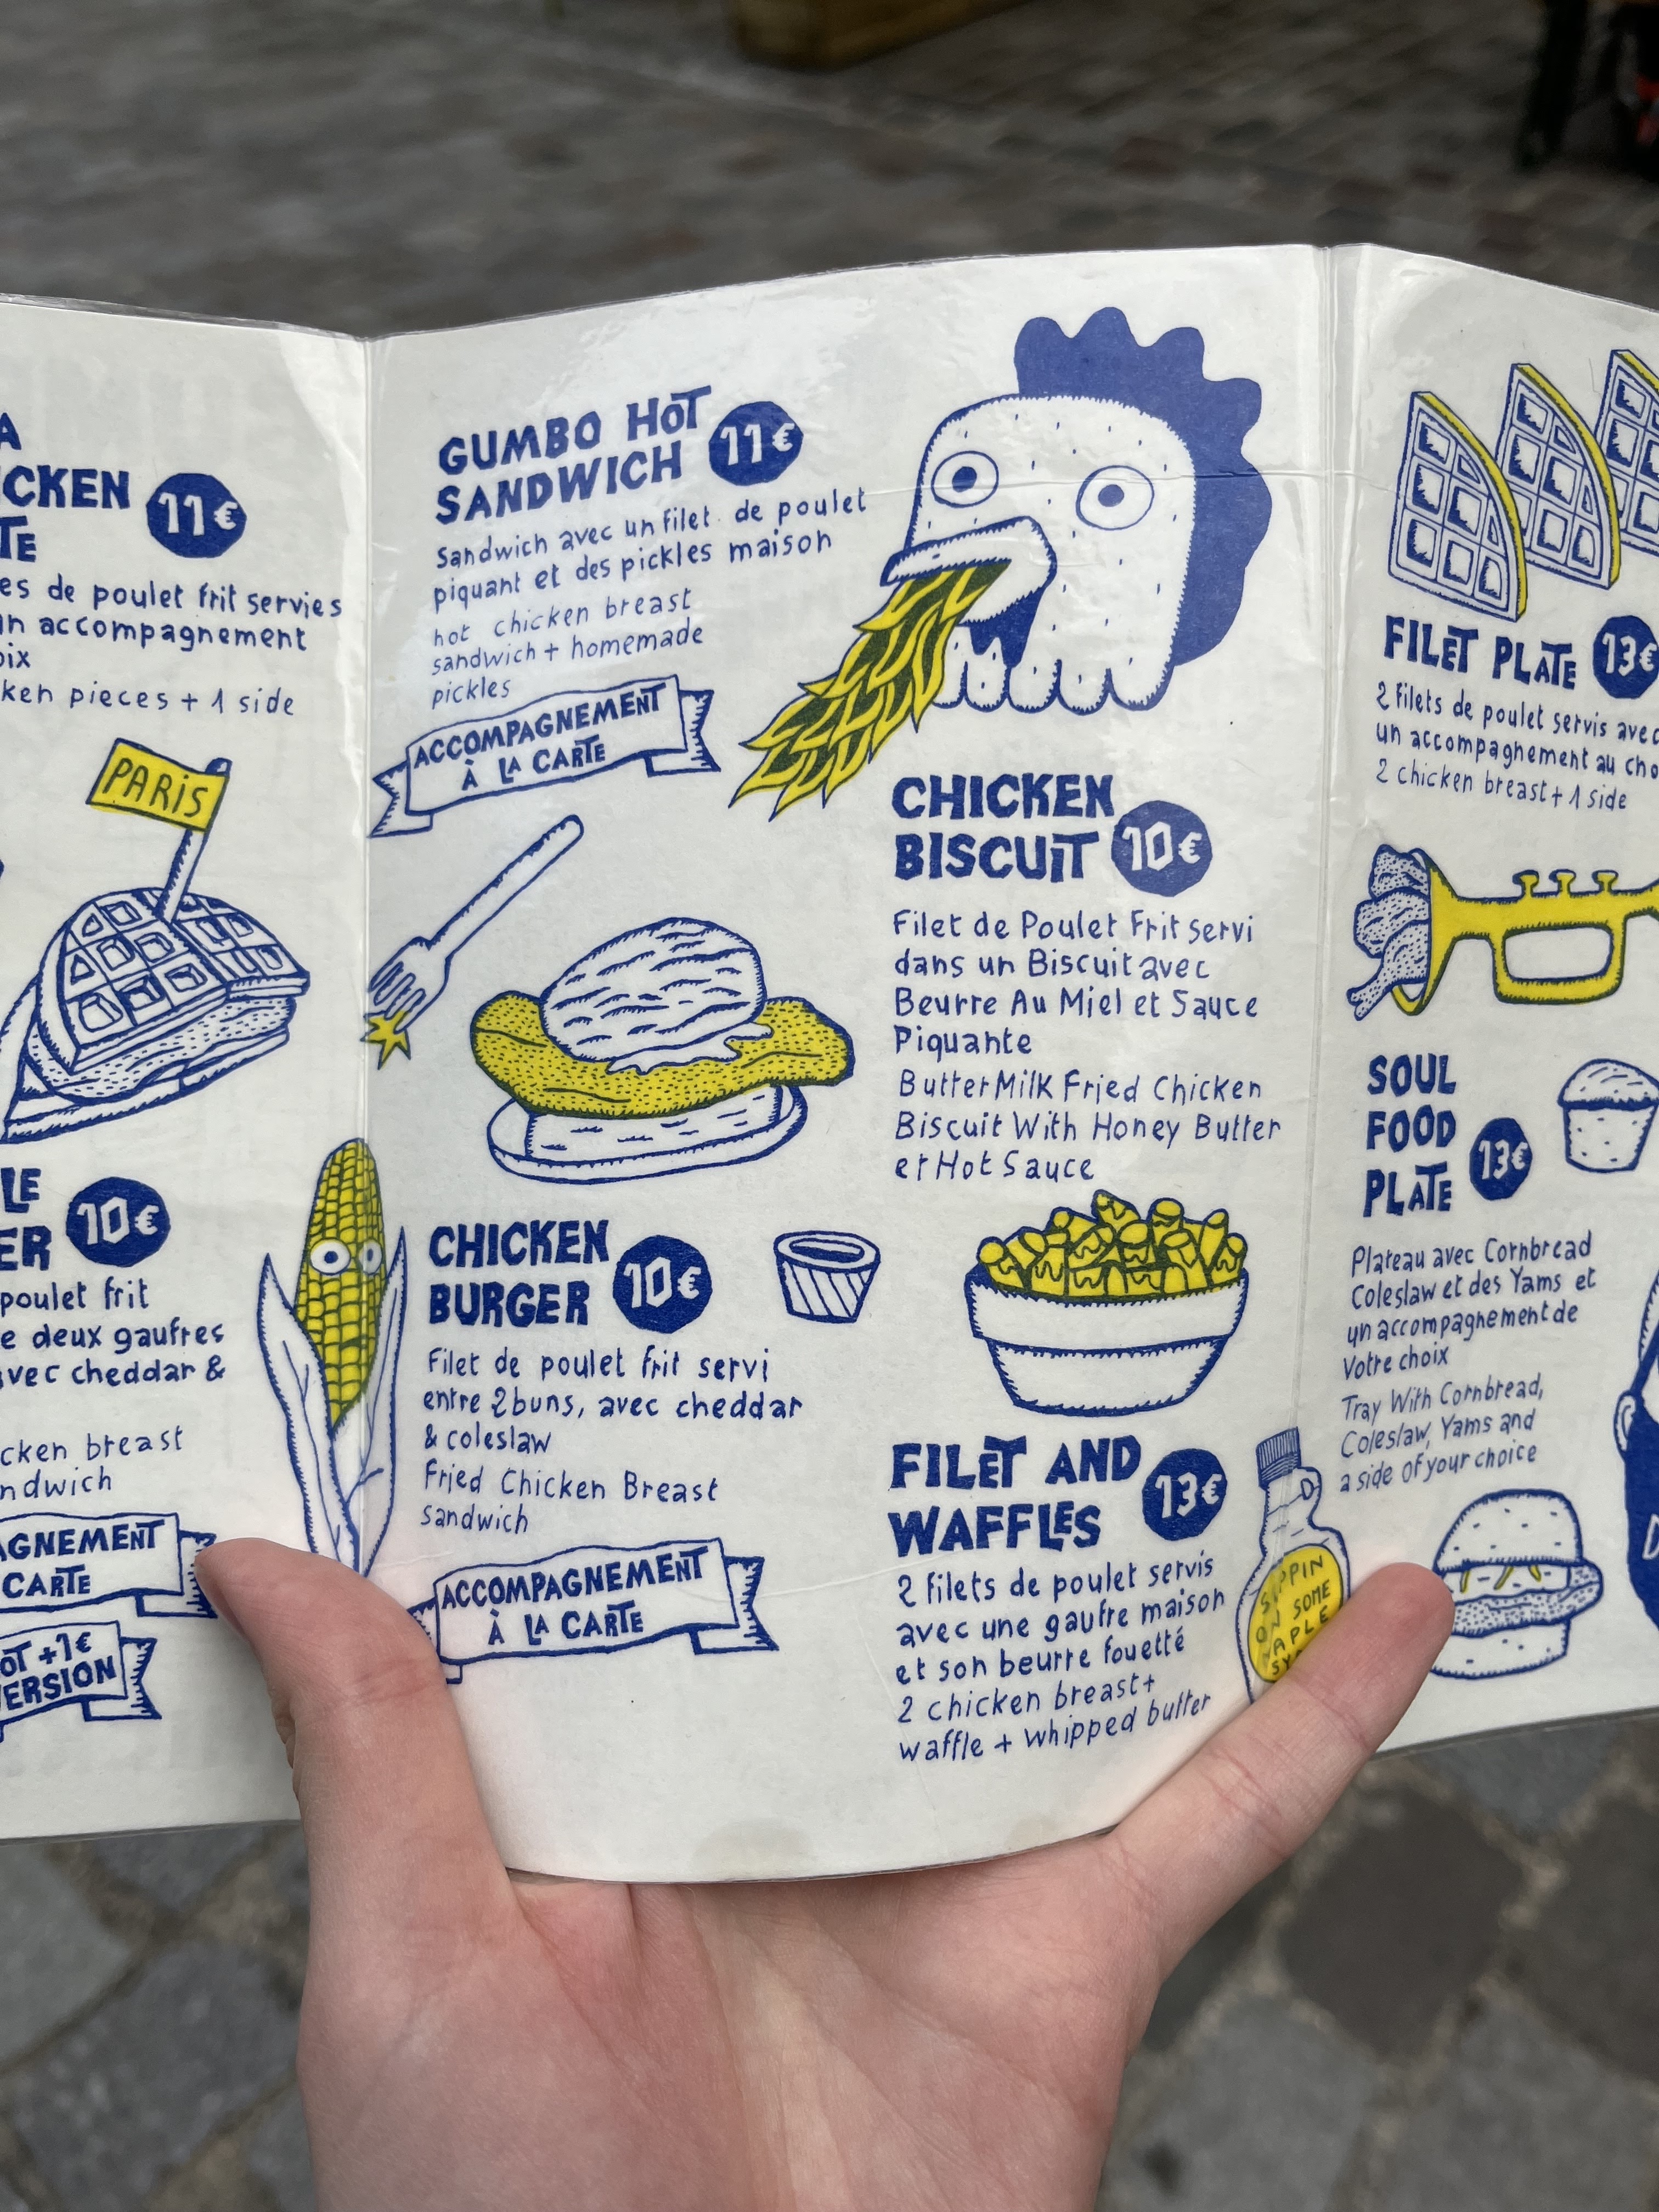 A
CKEN
11€
TE
es de poulet frit servies
un accompagnement
oix
ken pieces + 1 side
PARIS
LE
ER
10€
poulet frit
e deux gaufres
avec cheddar &
cken breast
ndwich
AGNEMENT
CARTE
OT +1€
VERSION
GUMBO HOT
SANDWICH
11€
Sandwich avec un filet de poulet
piquant et des pickles maison
hot chicken breast
sandwich + homemade
pickles
ACCOMPAGNEMENT
À LA CARTE
CHICKEN
BURGER
10€
Filet de poulet frit servi
entre 2 buns, avec cheddar
& coleslaw
Fried Chicken Breast
sandwich
ACCOMPAGNEMENT
À LA CARTE
CHICKEN
BISCUIT
10€
Filet de Poulet Frit servi
dans un Biscuit avec
Beurre Au Miel et Sauce
Piquante
ButterMilk Fried Chicken
Biscuit With Honey Butter
et Hot Sauce
FILET AND
WAFFLES
13€
2 filets de poulet servis
avec une gaufre maison
et son beurre fouetté
2 chicken breast +
waffle + whipped butter
SIPPIN
ON SOME
MAPLE
SY
FILET PLATE
13€
2 filets de poulet servis avec
un accompagnement au cho
2 chicken breast + 1 side
SOUL
FOOD
PLATE
13€
Plateau avec Cornbread
Coleslaw et des Yams et
un accompagnement de
Votre choix
Tray With Cornbread,
Coleslaw, Yams and
a side of your choice
D